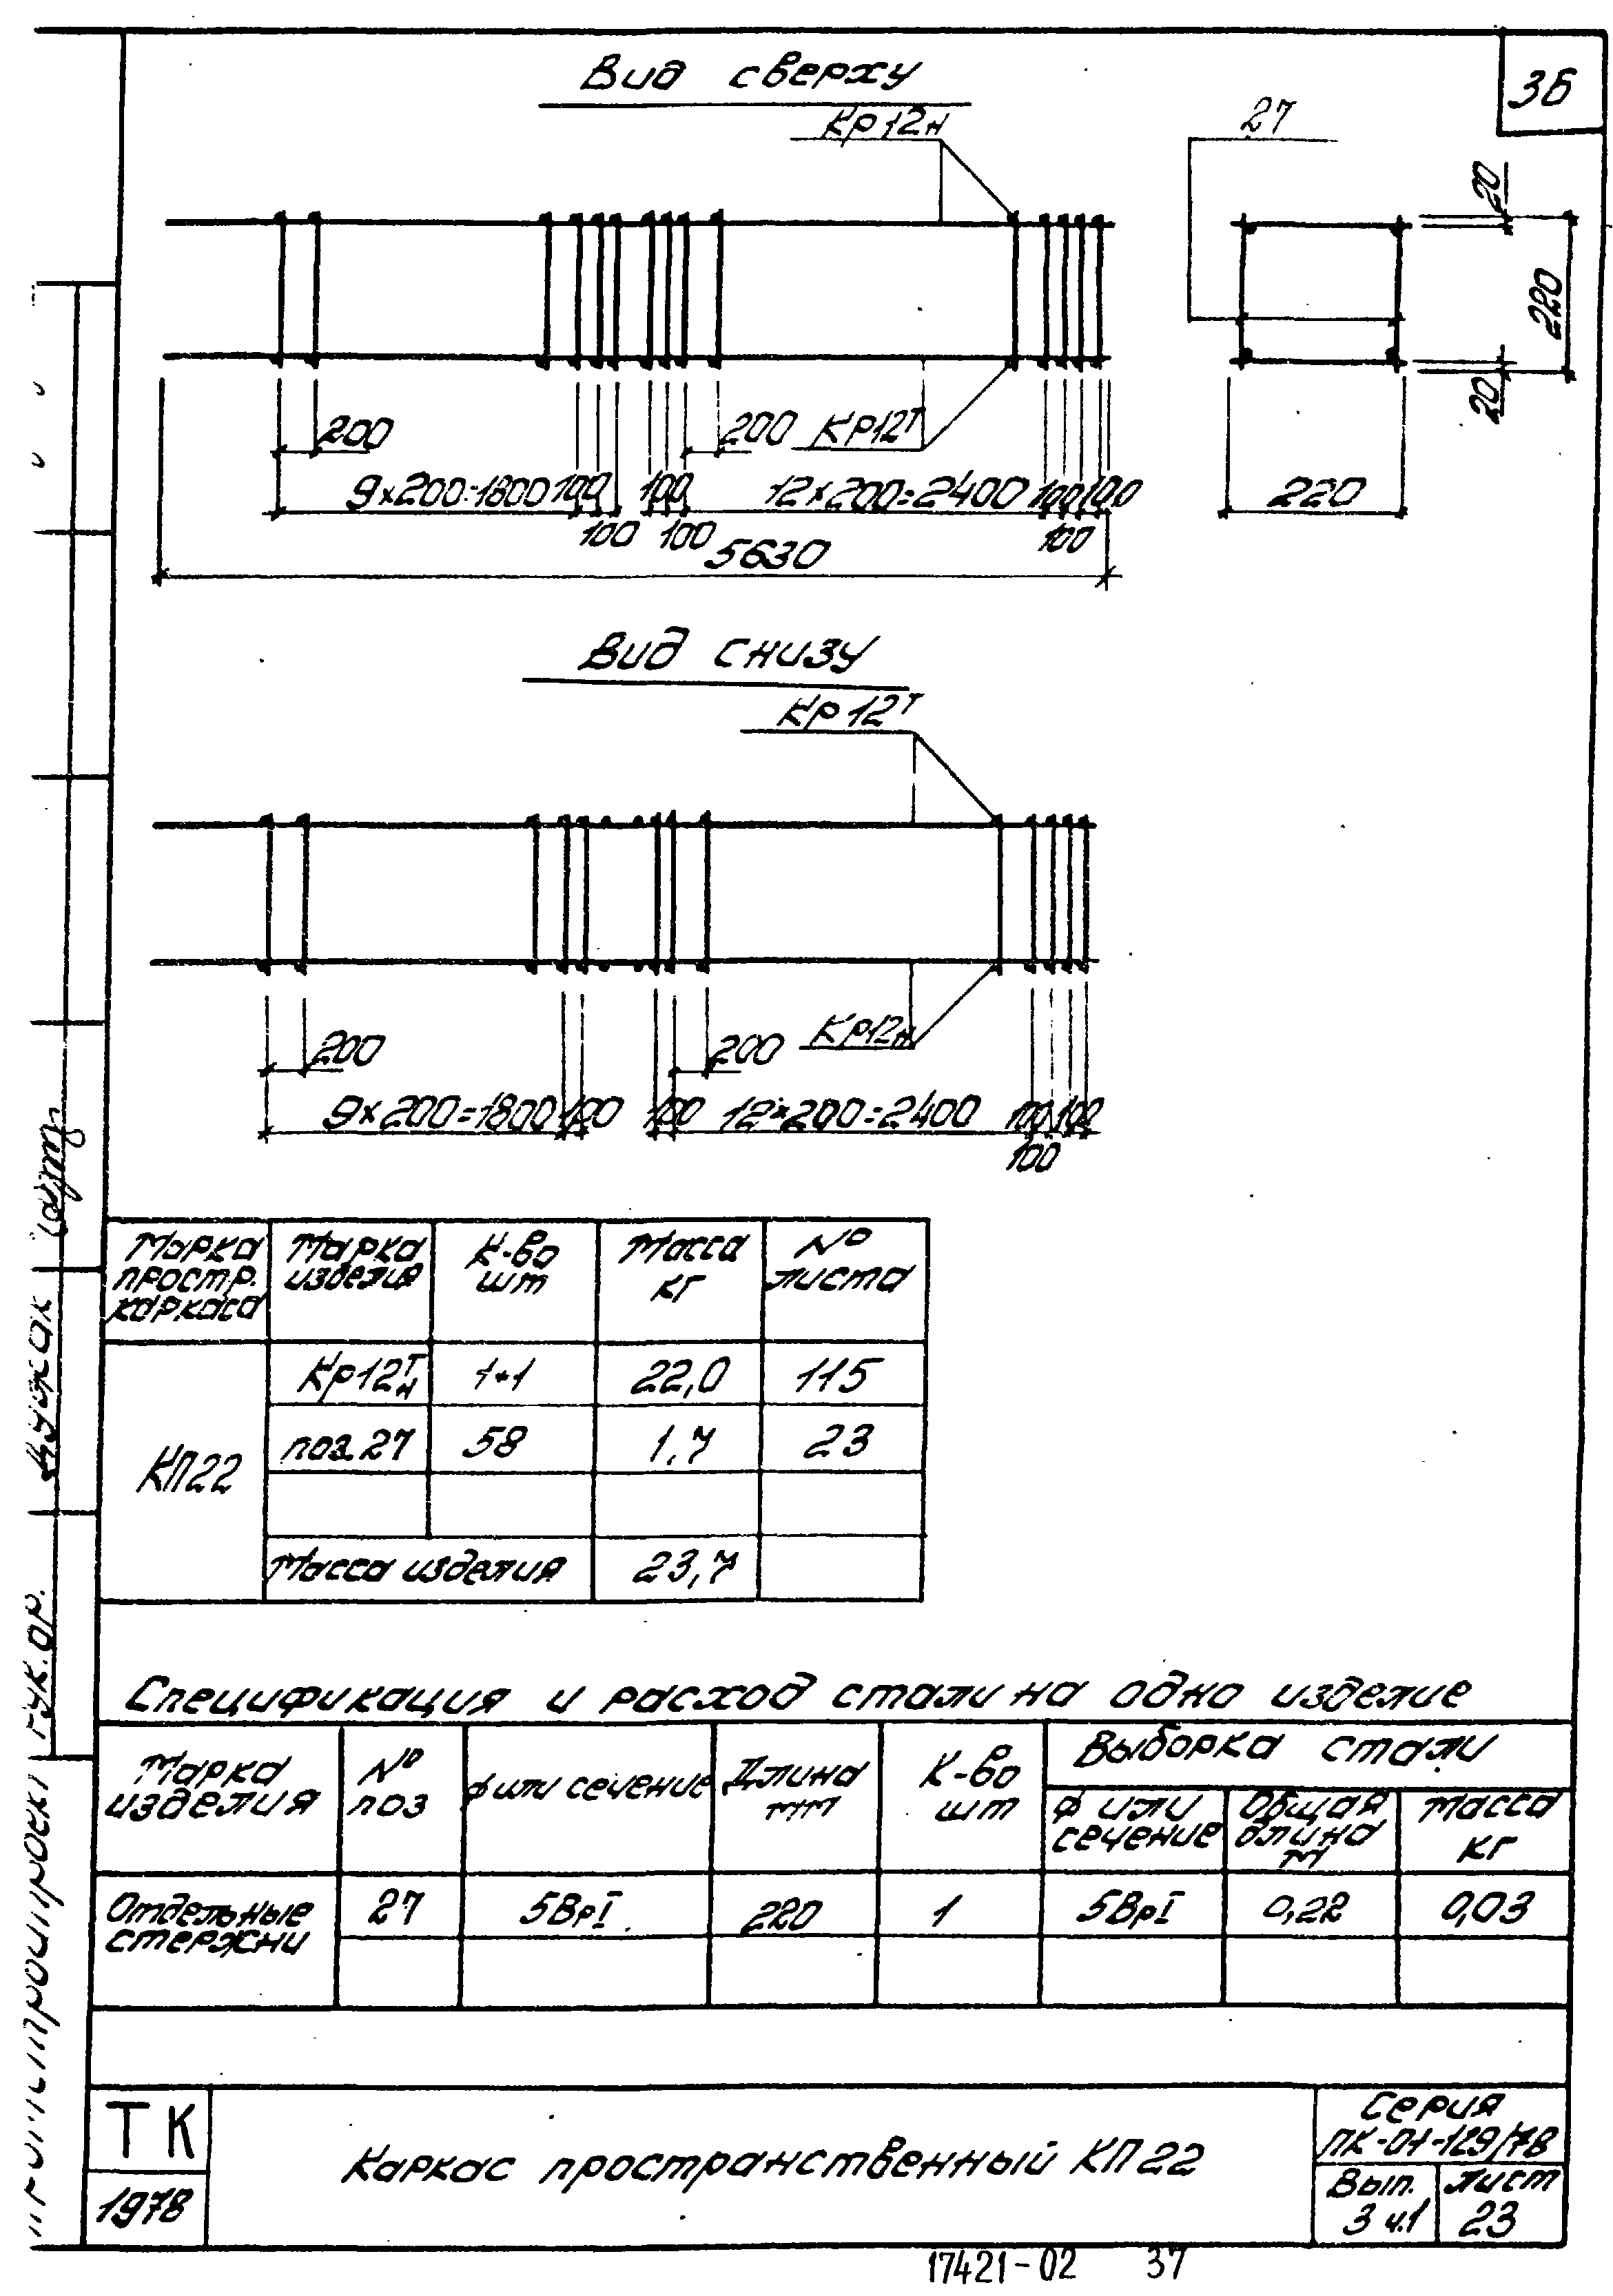 Вид сверху
36
Кр12н
27
20
220
20
200
200
Кр12т
9×200=1800
100
100
12×200=2400
100
100
220
100
100
100
5630
Вид снизу
Кр12т
200
200
Кр12н
9×200=1800
100
100
12×200=2400
100
100
100
Марка простр. каркаса
Марка изделия
К-во шт
Масса кг
№ листа
КП22
Кр12т н
1+1
22,0
115
поз. 27
58
1,7
23
Масса изделия
23,7
Спецификация и расход стали на одно изделие
Марка изделия
№ поз
ф или сечение
Длина мм
К-во шт
Выборка стали
ф или сечение
Общая длина м
Масса кг
Отдельные стержни
27
5ВрI
220
1
5ВрI
0,22
0,03
ТК
1978
Каркас пространственный КП22
Серия
ПК-01-129/78
Вып.
3 ч.1
Лист
23
17421-02 37
Рук.гр.